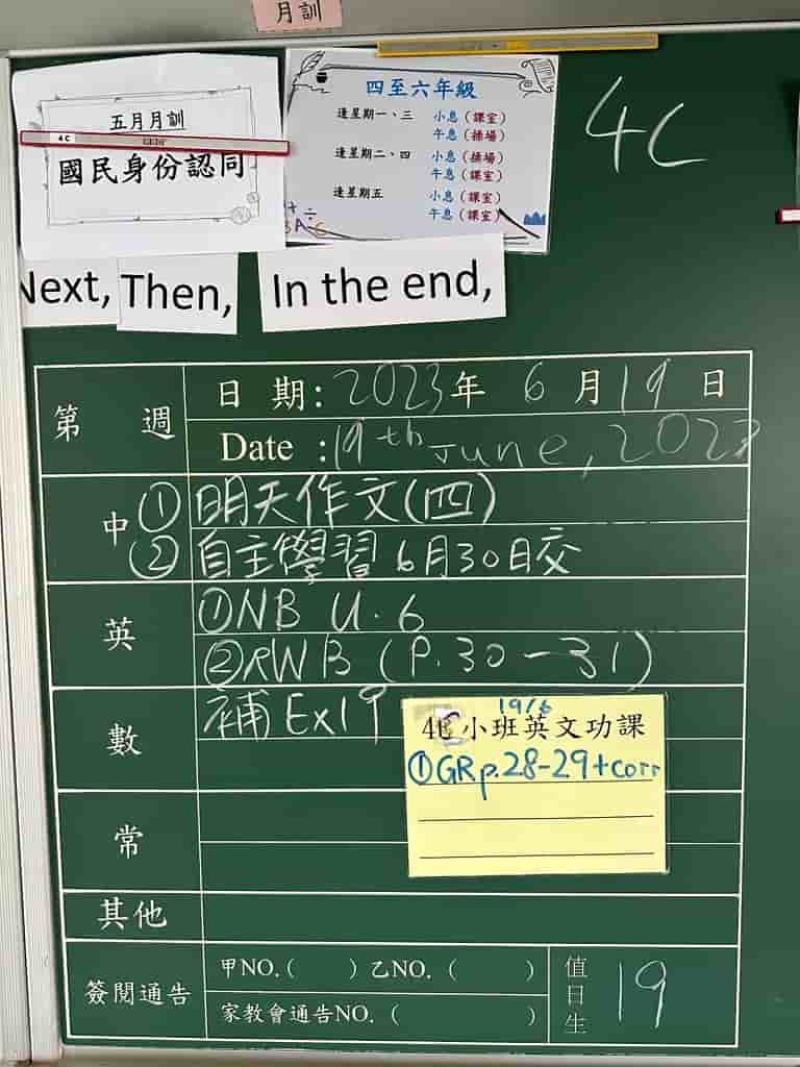 月訓
五月月訓
4C
國民身份認同
四至六年級
逢星期一、三 小息（課室）
午息（操場）
逢星期二、四 小息（操場）
午息（課室）
逢星期五 小息（課室）
午息（課室）
4C
Next, Then, In the end,
第 週
日 期：2023年 6 月19 日
Date ：19th June, 2023
中 ① 明天作文(四)
② 自主學習 6月30日交
英 ①NB U.6
②RWB (P.30-31)
數 補 Ex19
19/6
4C小班英文功課
①GRp.28-29+corr
常
其他
簽閱通告
甲NO.( ) 乙NO. ( )
家教會通告NO. ( )
值日生 19